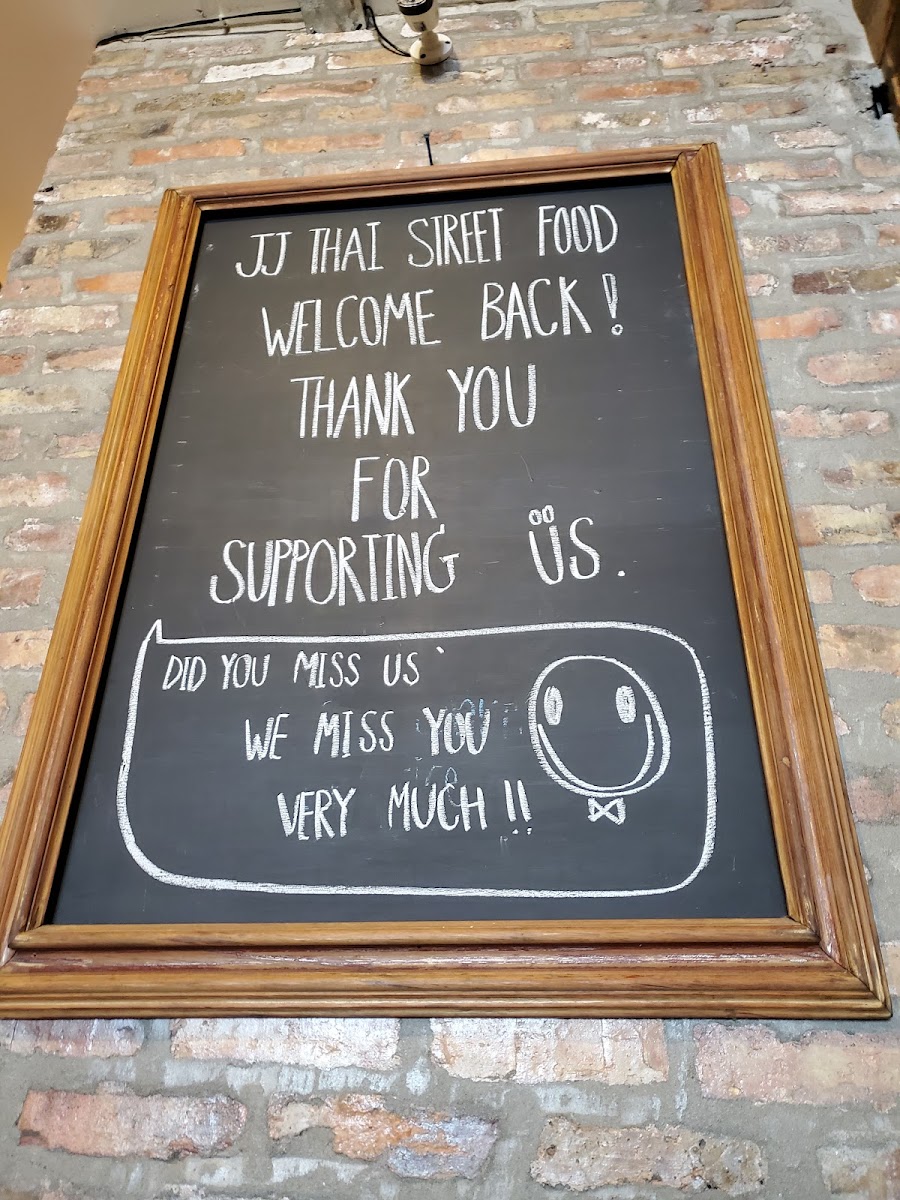 JJ THAI STREET FOOD
WELCOME BACK!
THANK YOU
FOR
SUPPORTING ÜS.
DID YOU MISS US`
WE MISS YOU
VERY MUCH!!